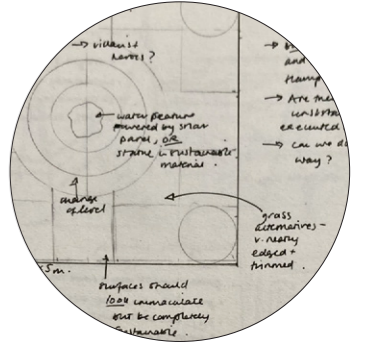 → villainist
heroes?
→ water feature
powered by solar
panel, OR
statue in sustainable
material.
change
of level
5m.
grass
alternatives -
v. neatly
edged +
trimmed.
surfaces should
look immaculate
but be completely
sustainable.
→
and
→ Are the
→ can we do
way?